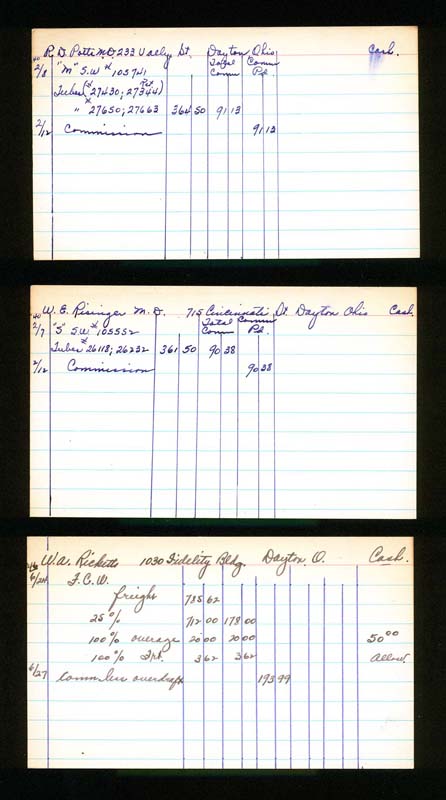 R. D. Potts M.D. 233 Valley St. Dayton Ohio Cash.
40 Total Comm
2/8 "M" S.W # 105741 Comm Pd.
Tubes (# 27430; 27344)
" # 27650; 27663 364 50 91 13
2/12 Commission 91 13
W. E. Risinger M.D. 715 Cincinnati St. Dayton Ohio Cash.
40 Total Comm
2/7 "S" S.W # 105552 Comm Pd.
Tubes # 26118; 26232 361 50 90 38
2/12 Commission 90 38
W.A. Ricketts 1030 Fidelity Bldg. Dayton, O. Cash.
6/24 F.C.W.
freight 735.62
25% 712 00 178 00
100% overage 20 00 20 00 50 00
100% Frt. 3 62 3 62 Allow
6/27 Comm less overdraft 193 99